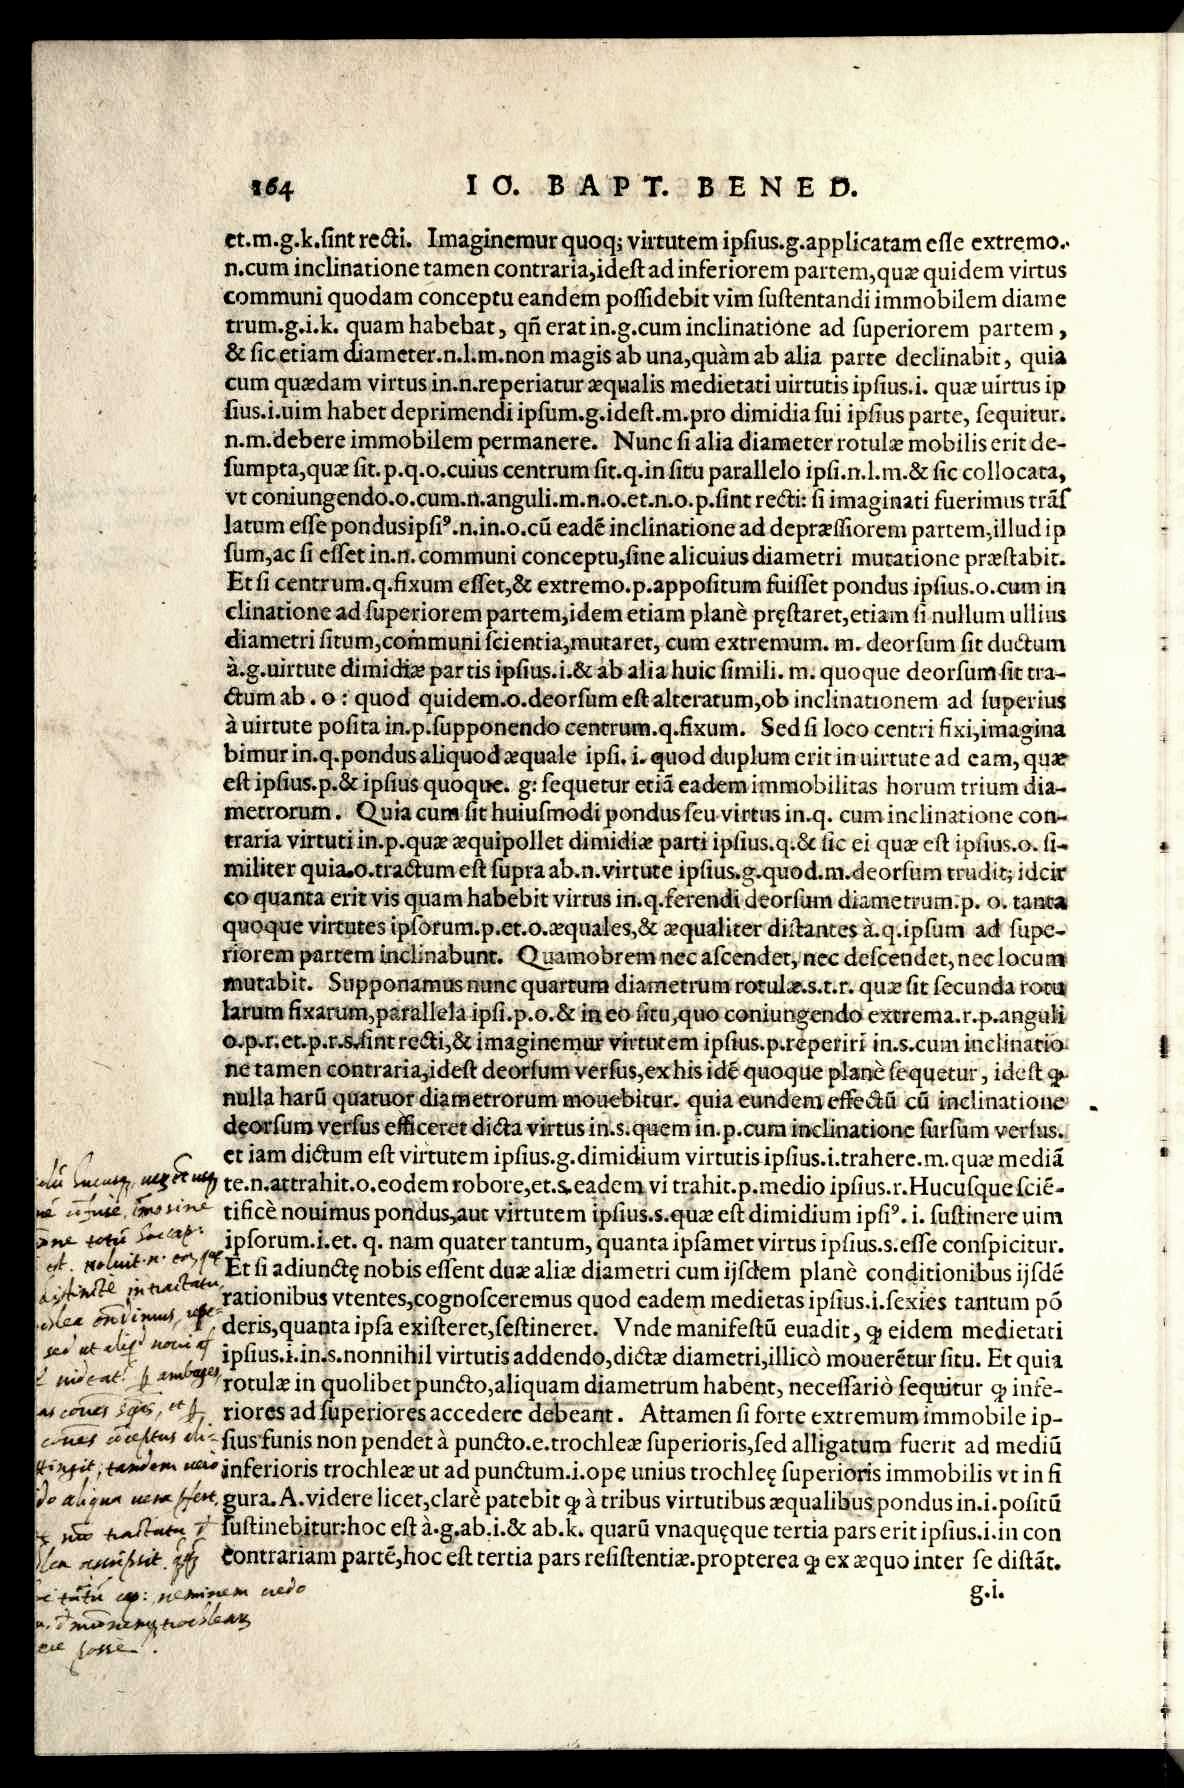 164
IO. BAPT. BENED.
et.m.g.k.ſint recti. Imaginemur quoq; virtutem ipſius.g.applicatam eſſe extremo.
n.cum inclinatione tamen contraria,ideſt ad inferiorem partem,quæ quidem virtus
communi quodam conceptu eandem poſſidebit vim ſuſtentandi immobilem diame
trum.g.i.k. quam habebat, qñ erat in.g.cum inclinatione ad ſuperiorem partem,
& ſic etiam diameter.n.l.m.non magis ab una,quàm ab alia parte declinabit, quia
cum quædam virtus in.n.reperiatur æqualis medietati uirtutis ipſius.i. quæ uirtus ip
ſius.i.uim habet deprimendi ipſum.g.ideſt.m.pro dimidia ſui ipſius parte, ſequitur.
n.m.debere immobilem permanere. Nunc ſi alia diameter rotulæ mobilis erit de-
ſumpta,quæ ſit.p.q.o.cuius centrum ſit.q.in ſitu parallelo ipſi.n.l.m.& ſic collocata,
vt coniungendo.o.cum.n.anguli.m.n.o.et.n.o.p.ſint recti: ſi imaginati fuerimus trãſ
latum eſſe pondus ipſiꝰ.n.in.o.cũ eadẽ inclinatione ad depræſſiorem partem,illud ip
ſum,ac ſi eſſet in.n.communi conceptu,ſine alicuius diametri mutatione præſtabit.
Et ſi centrum.q.fixum eſſet,& extremo.p.appoſitum fuiſſet pondus ipſius.o.cum in
clinatione ad ſuperiorem partem,idem etiam planè pręſtaret,etiam ſi nullum ullius
diametri ſitum,communi ſcientia,mutaret, cum extremum. m. deorſum ſit ductum
à.g.uirtute dimidiæ partis ipſius.i.& ab alia huic ſimili. m. quoque deorſum ſit tra-
ctum ab . o : quod quidem.o.deorſum eſt alteratum,ob inclinationem ad ſuperius
à uirtute poſita in.p.ſupponendo centrum.q.fixum. Sed ſi loco centri fixi,imagina
bimur in.q.pondus aliquod æquale ipſi. i. quod duplum erit in uirtute ad eam, quæ
eſt ipſius.p.& ipſius quoque. g: ſequetur etiã eadem immobilitas horum trium dia-
metrorum. Quia cum ſit huiuſmodi pondus ſeu virtus in.q. cum inclinatione con-
traria virtuti in.p.quæ æquipollet dimidiæ parti ipſius.q.& ſic ei quæ eſt ipſius.o. ſi-
militer quia.o.tractum eſt ſupra ab.n.virtute ipſius.g.quod.m.deorſum trudit; idcir
co quanta erit vis quam habebit virtus in.q.ferendi deorſum diametrum.p. o. tanta
quoque virtutes ipſorum.p.et.o.æquales,& æqualiter diſtantes à.q.ipſum ad ſupe-
riorem partem inclinabunt. Quamobrem nec aſcendet, nec deſcendet, nec locum
mutabit. Supponamus nunc quartum diametrum rotulæ.s.t.r. quæ ſit ſecunda rotu
larum fixarum,parallela ipſi.p.o.& in eo ſitu,quo coniungendo extrema.r.p.anguli
o.p.r.et.p.r.s.ſint recti,& imaginemur virtutem ipſius.p.reperiri in.s.cum inclinatio
ne tamen contraria,ideſt deorſum verſus,ex his idẽ quoque planè ſequetur, ideſt ꝙ
nulla harũ quatuor diametrorum mouebitur. quia eundem effectũ cũ inclinatione
deorſum verſus efficeret dicta virtus in.s.quem in.p.cum inclinatione ſurſum verſus.
et iam dictum eſt virtutem ipſius.g.dimidium virtutis ipſius.i.trahere.m.quæ mediã
te.n.attrahit.o.eodem robore,et.s.eadem vi trahit.p.medio ipſius.r.Hucuſque ſciẽ-
tificè nouimus pondus,aut virtutem ipſius.s.quæ eſt dimidium ipſiꝰ. i. ſuſtinere uim
ipſorum.i.et. q. nam quater tantum, quanta ipſamet virtus ipſius.s.eſſe conſpicitur.
Et ſi adiunctę nobis eſſent duæ aliæ diametri cum ijſdem planè conditionibus ijſdẽ
rationibus vtentes,cognoſceremus quod eadem medietas ipſius.i.ſexies tantum põ
deris,quanta ipſa exiſteret,ſeſtineret. Vnde manifeſtũ euadit, ꝙ eidem medietati
ipſius.i.in.s.nonnihil virtutis addendo,dictæ diametri,illicò mouerẽtur ſitu. Et quia
rotulæ in quolibet puncto,aliquam diametrum habent, neceſſariò ſequitur ꝙ infe-
riores ad ſuperiores accedere debeant. Attamen ſi forte extremum immobile ip-
ſius funis non pendet à puncto.e.trochleæ ſuperioris,ſed alligatum fuerit ad mediũ
inferioris trochleæ ut ad punctum.i.ope unius trochleę ſuperioris immobilis vt in fi
gura.A.videre licet,clarè patebit ꝙ à tribus virtutibus æqualibus pondus in.i.poſitũ
ſuſtinebitur:hoc eſt à.g.ab.i.& ab.k. quarũ vnaquęque tertia pars erit ipſius.i.in con
contrariam partẽ,hoc eſt tertia pars reſiſtentiæ.propterea ꝙ ex æquo inter ſe diſtãt.
g.i.